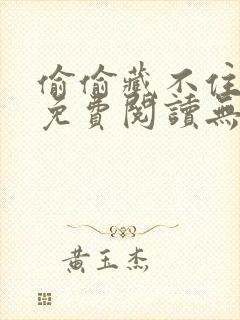 偷偷藏不住
免費閱讀無
黃玉杰